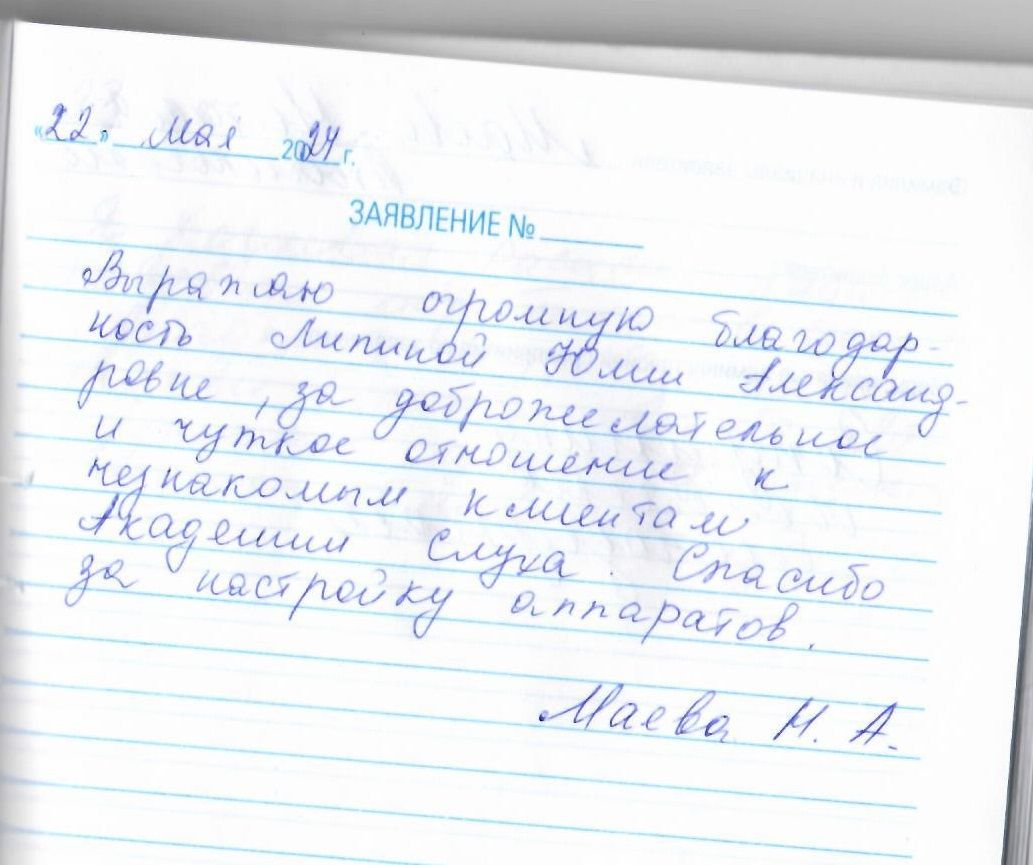 «22» мая 2024 г.
ЗАЯВЛЕНИЕ № ______
Выражаю огромную благодар-
ность Липиной Юлии Александ-
ровне, за доброжелательное
и чуткое отношение к
незнакомым клиентам
Академии Слуха. Спасибо
за настройку аппаратов.
Маева Н. А.